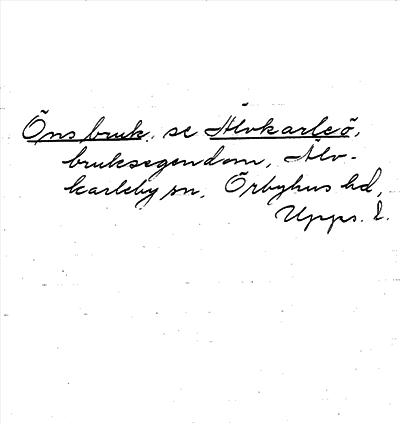 Öns bruk, se Älvkarleö,
bruksegendom, Älv-
karleby sn, Örbyhus hd,
Upps. l.